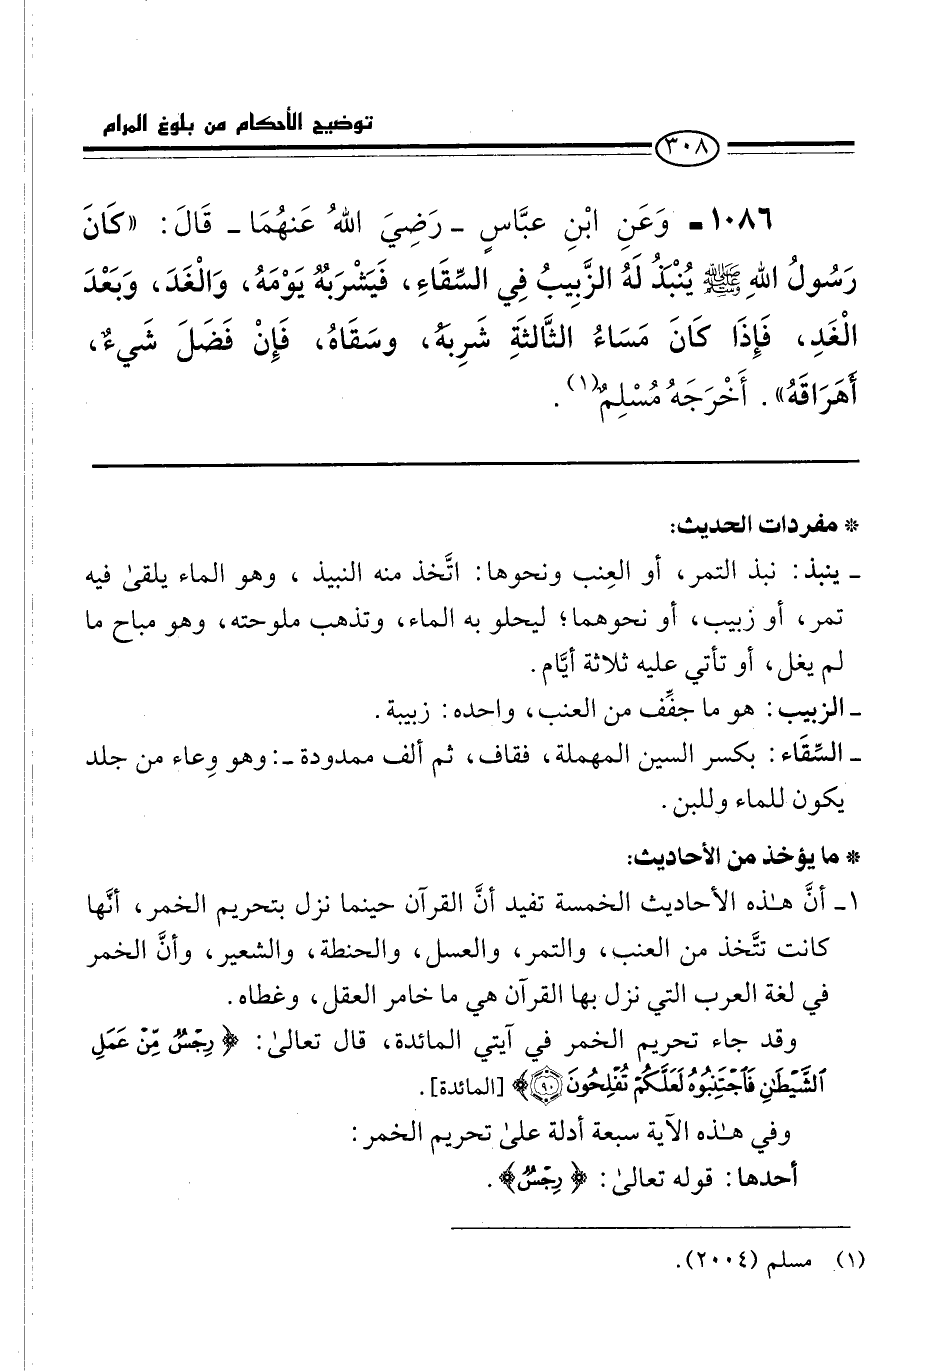 توضيح الأحكام من بلوغ المرام
٣٠٨
١٠٨٦ـ وَعَنِ ابْنِ عبَّاسٍ ـ رَضِيَ اللهُ عَنهُمَا ـ قَالَ: «كَانَ
رَسُولُ اللهِ ﷺ يُنْبَذُ لَهُ الزَّبِيبُ فِي السِّقَاءِ، فَيَشْرَبُهُ يَوْمَهُ، وَالْغَدَ، وَبَعْدَ
الْغَدِ، فَإِذَا كَانَ مَسَاءُ الثَّالثةِ شَرِبَهُ، وسَقَاهُ، فَإِنْ فَضَلَ شَيءٌ،
أَهَرَاقَهُ». أَخْرَجَهُ مُسْلِمٌ(١).
* مفردات الحديث:
ـ ينبذ: نبذ التمر، أو العِنب ونحوها: اتَّخذ منه النبيذ، وهو الماء يلقىٰ فيه
تمر، أو زبيب، أو نحوهما؛ ليحلو به الماء، وتذهب ملوحته، وهو مباح ما
لم يغل، أو تأتي عليه ثلاثة أيَّام.
ـ الزبيب: هو ما جفِّف من العنب، واحده: زبيبة.
ـ السِّقَاء: بكسر السين المهملة، فقاف، ثم ألف ممدودة ـ: وهو وِعاء من جلد
يكون للماء وللبن.
* ما يؤخذ من الأحاديث:
١ـ أنَّ هـٰذه الأحاديث الخمسة تفيد أنَّ القرآن حينما نزل بتحريم الخمر، أنَّها
كانت تتَّخذ من العنب، والتمر، والعسل، والحنطة، والشعير، وأنَّ الخمر
في لغة العرب التي نزل بها القرآن هي ما خامر العقل، وغطاه.
وقد جاء تحريم الخمر في آيتي المائدة، قال تعالىٰ: ﴿رِجْسٌ مِّنْ عَمَلِ
ٱلشَّيْطَٰنِ فَٱجْتَنِبُوهُ لَعَلَّكُمْ تُفْلِحُونَ ٩٠﴾ [المائدة].
وفي هـٰذه الآية سبعة أدلة علىٰ تحريم الخمر:
أحدها: قوله تعالىٰ: ﴿رِجْسٌ﴾.
(١) مسلم (٢٠٠٤).